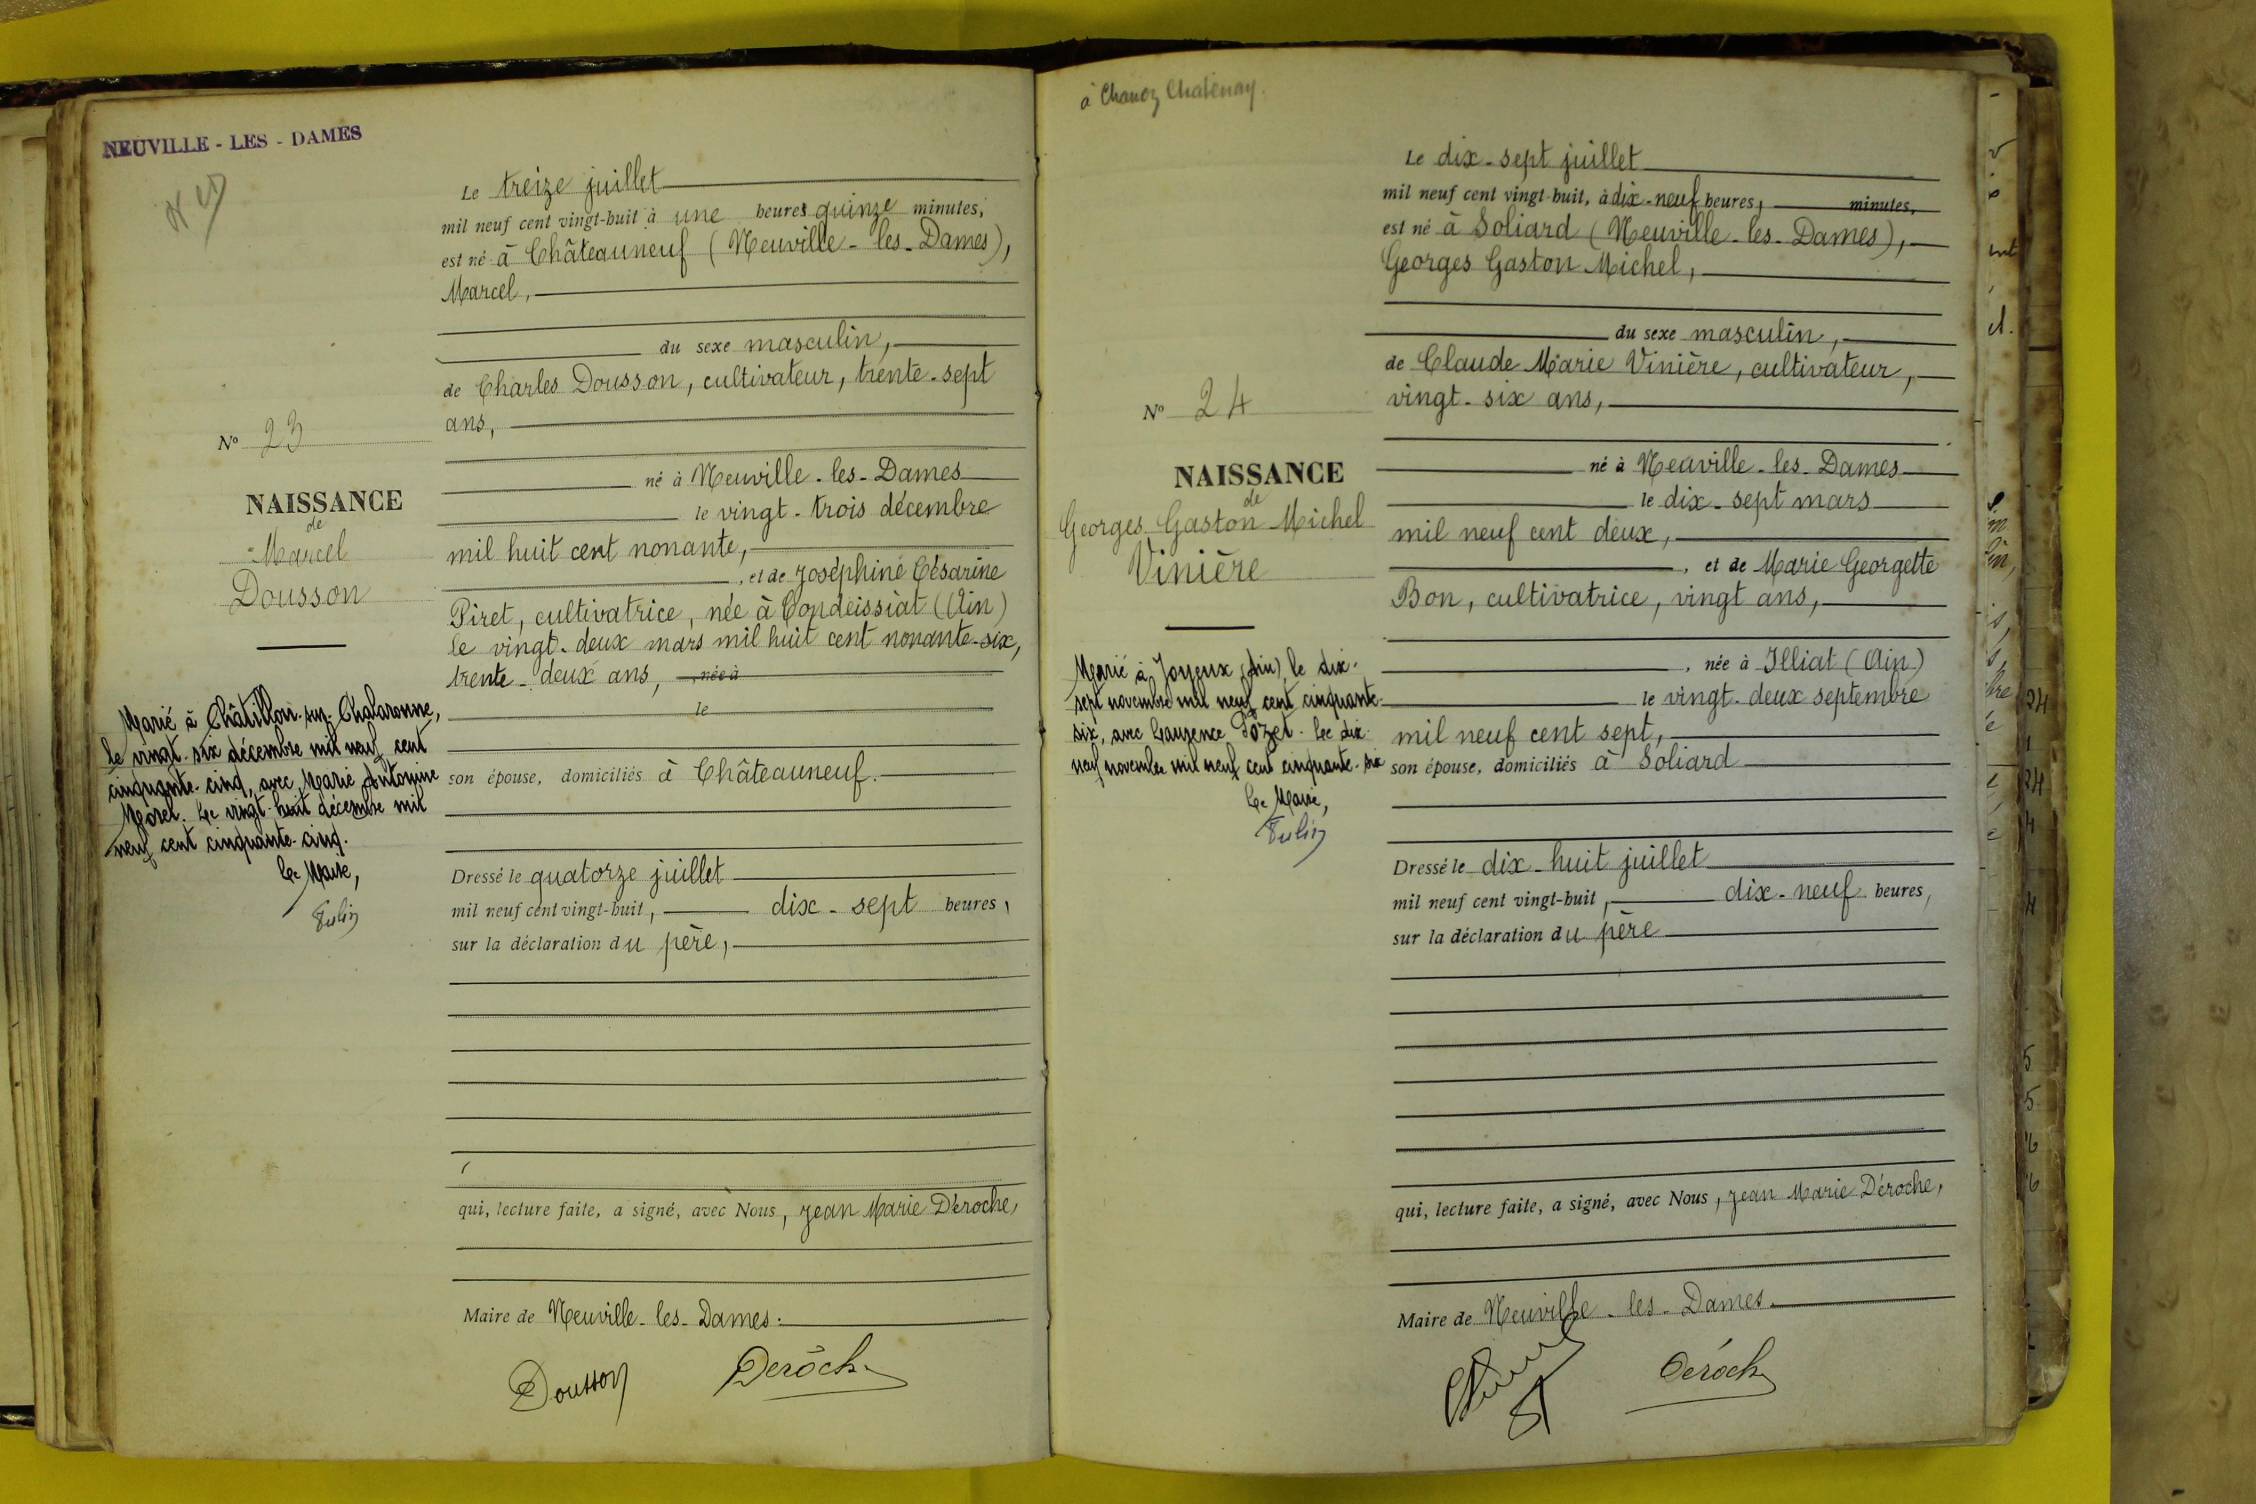 NEUVILLE - LES - DAMES
Le treize juillet
mil neuf cent vingt-huit à une heures quinze minutes,
est né à Châteauneuf (Neuville-les-Dames),
Marcel,
du sexe masculin,
de Charles Dousson, cultivateur, trente-sept
ans,
né à Neuville-les-Dames
le vingt-trois décembre
mil huit cent nonante,
, et de Joséphine Césarine
Piret, cultivatrice, née à Condeissiat (Ain)
le vingt-deux mars mil huit cent nonante-six,
trente-deux ans, née à
le
son épouse, domiciliés à Châteauneuf.
Dressé le quatorze juillet
mil neuf cent vingt-huit, dix-sept heures,
sur la déclaration du père,
qui, lecture faite, a signé, avec Nous, Jean Marie Déroche,
Maire de Neuville-les-Dames.
Dousson Deroche
N° 23
NAISSANCE
de
Marcel
Dousson
Marié à Châtillon-sur-Chalaronne,
le vingt-six décembre mil neuf cent
cinquante-cinq, avec Marie Antonine
Morel. Le vingt-huit décembre mil
neuf cent cinquante-cinq.
Le Maire,
à Chanoz Chatenay.
Le dix-sept juillet
mil neuf cent vingt-huit, à dix-neuf heures, minutes,
est né à Soliard (Neuville-les-Dames),
Georges Gaston Michel,
du sexe masculin,
de Claude Marie Vinière, cultivateur,
vingt-six ans,
né à Neuville-les-Dames
le dix-sept mars
mil neuf cent deux,
, et de Marie Georgette
Bon, cultivatrice, vingt ans,
, née à Illiat (Ain)
le vingt-deux septembre
mil neuf cent sept,
son épouse, domiciliés à Soliard
Dressé le dix-huit juillet
mil neuf cent vingt-huit, dix-neuf heures,
sur la déclaration du père
qui, lecture faite, a signé, avec Nous, Jean Marie Déroche,
Maire de Neuville-les-Dames.
Deroche
N° 24
NAISSANCE
de
Georges Gaston Michel
Vinière
Marié à Joyeux (Ain), le dix-
sept novembre mil neuf cent cinquante-
six, avec Laurence Pozet. Le dix-
neuf novembre mil neuf cent cinquante-six
Le Maire,